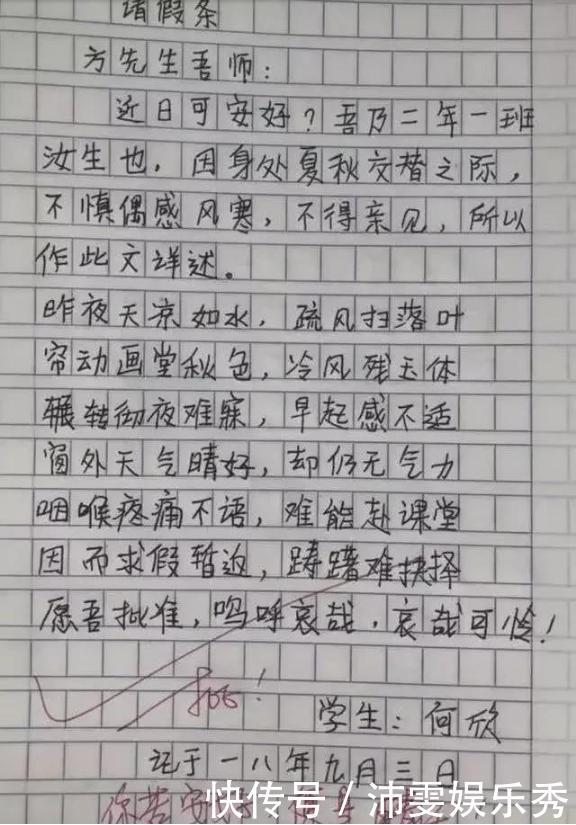 请假条
方先生吾师：
近日可安好？吾乃二年一班
汝生也，因身处夏秋交替之际，
不慎偶感风寒，不得亲见，所以
作此文详述。
昨夜天凉如水，疏风扫落叶
帘动画堂秋色，冷风残玉体
辗转彻夜难寐，早起感不适
窗外天气晴好，却仍无气力
咽喉疼痛不语，难能赴课堂
因而求假暂返，踌躇难抉择
愿吾批准，呜呼哀哉，哀哉可怜！
批！
学生：何欣
记于一八年九月三日
你若安好
快传号 / 沛雯娱乐秀